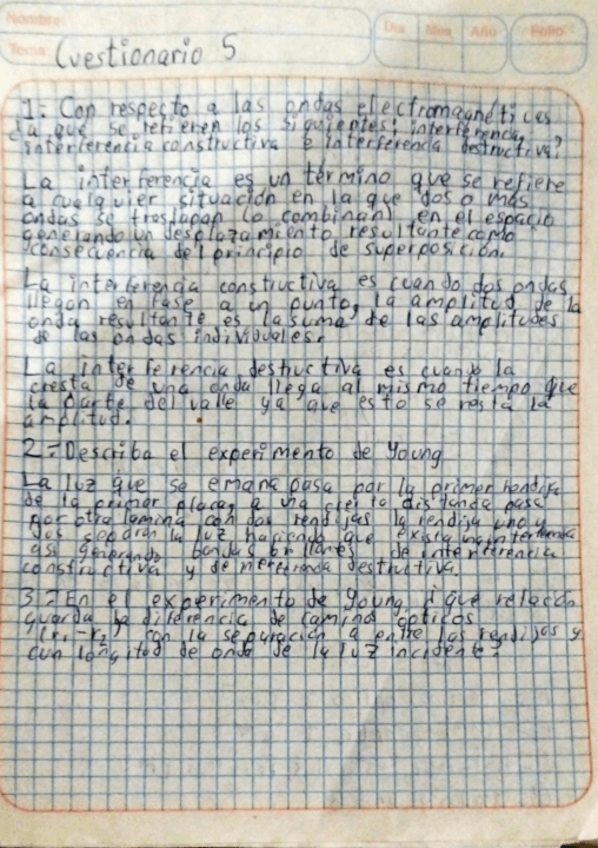 Nombre:
Dia Mes Año Folio
Tema: Cuestionario 5
1-: Con respecto a las ondas electromagnéticas
¿a que se refieren los siguientes: interferencia,
interferencia constructiva e interferencia destructiva?
La interferencia es un término que se refiere
a cualquier situación en la que dos o más
ondas se traslapan (o combinan) en el espacio
generando un desplazamiento resultante como
consecuencia del principio de superposición.
La interferencia constructiva es cuando dos ondas
llegan en fase a un punto, la amplitud de la
onda resultante es la suma de las amplitudes
de las ondas individuales.
La interferencia destructiva es cuando la
cresta de una onda llega al mismo tiempo que
la parte del valle ya que esto se resta la
amplitud.
2-: Describa el experimento de Young
La luz que se emana pasa por la primer rendija
de la primer placa, a una cierta distancia pasa
por otra lamina con dos rendijas la rendija uno y
dos separan la luz haciendo que exista
asi generando bandas brillantes de interferencia
constructiva y de destructiva.
3-: En el experimento de Young, ¿que relación
guarda la diferencia de camino ópticos
(r₁-r₂) con la separación a entre las rendijas y
con longitud de onda de la luz incidente?